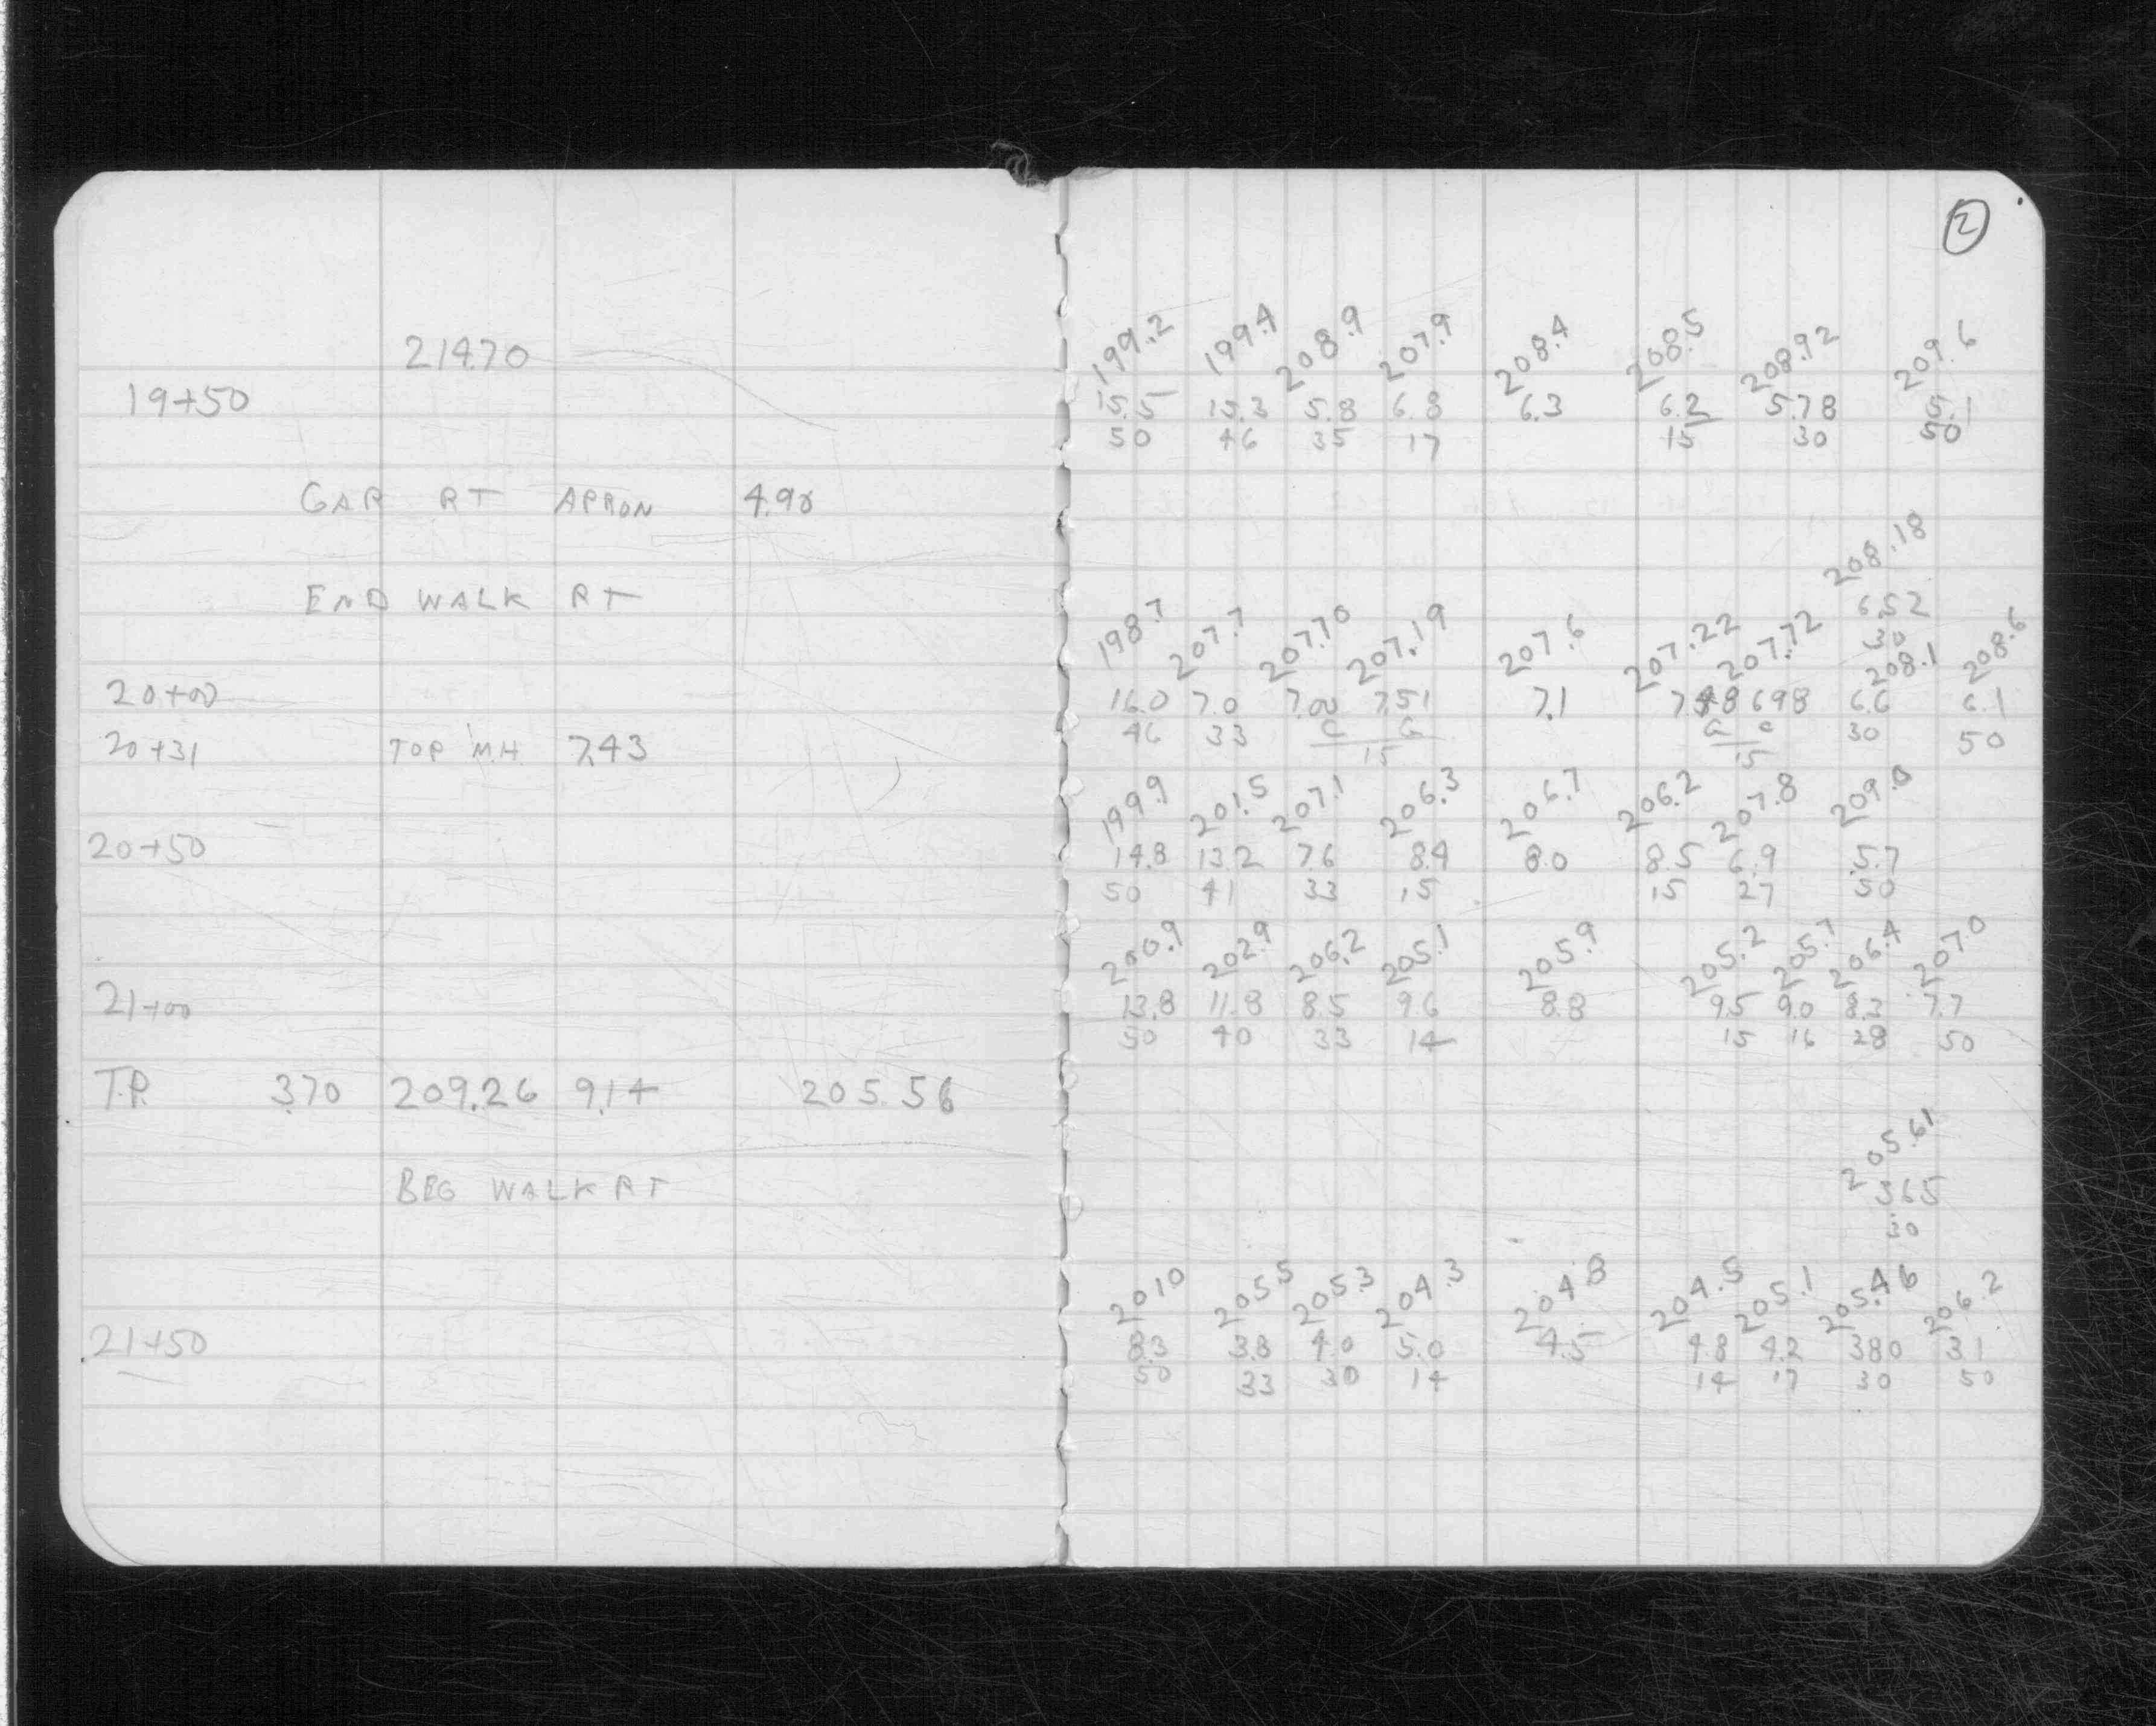 2
214.70
199.2 199.4 208.9 207.9 208.4 208.5 208.92 209.6
19+50 15.5 15.3 5.8 6.8 6.3 6.2 5.78 5.1
50 46 35 17 15 30 50
GAR RT APRON 4.98
208.18
END WALK RT 6.52
30
198.7 207.7 207.70 207.19 207.6 207.22 207.72 208.1 208.6
20+00 16.0 7.0 7.00 7.51 7.1 7.48 698 6.6 6.1
46 33 C G G C 30 50
20+31 TOP M.H. 7.43 15 15
199.9 201.5 207.1 206.3 206.7 206.2 207.8 209.0
20+50 14.8 13.2 7.6 8.4 8.0 8.5 6.9 5.7
50 41 33 15 15 27 50
200.9 202.9 206.2 205.1 205.9 205.2 205.7 206.4 207.0
21+00 13.8 11.8 8.5 9.6 8.8 9.5 9.0 8.3 7.7
50 40 33 14 15 16 28 50
T.P. 3.70 209.26 9.14 205.56
205.61
BEG WALK RT 365
30
201.0 205.5 205.3 204.3 204.8 204.5 205.1 205.46 206.2
21+50 8.3 3.8 4.0 5.0 4.5 4.8 4.2 380 3.1
50 33 30 14 14 17 30 50